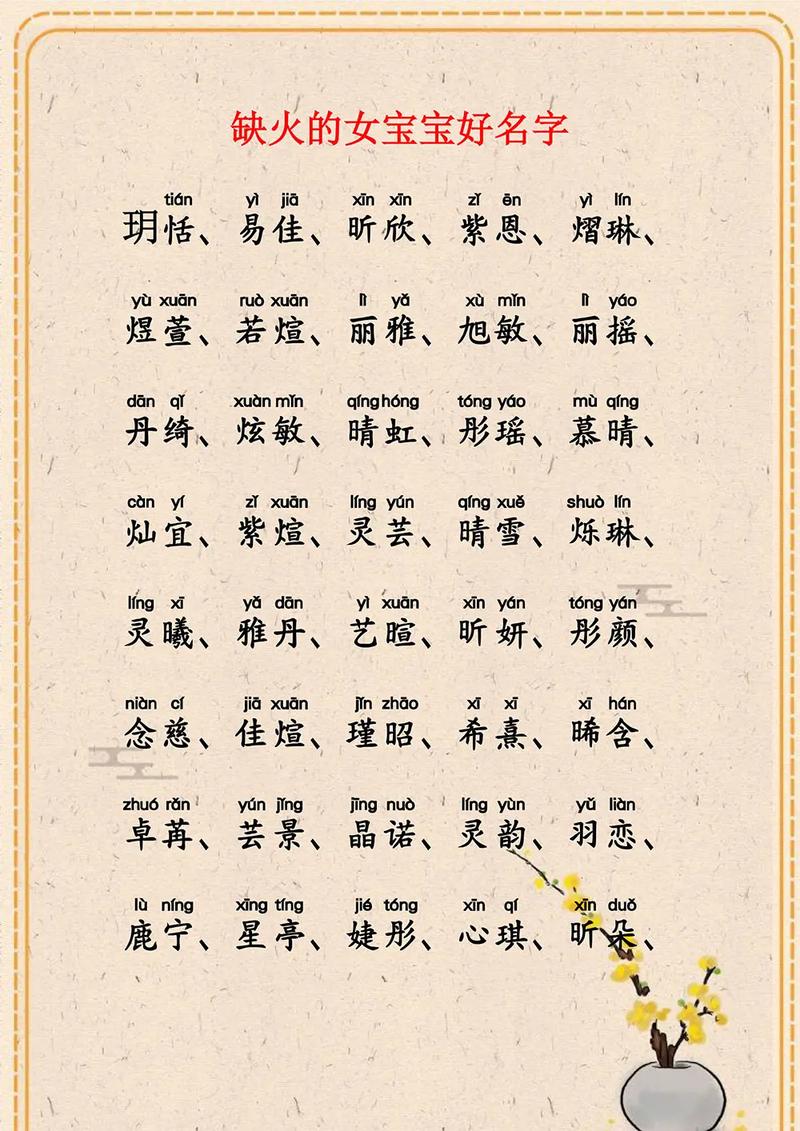 缺火的女宝宝好名字
tián yì jiā xīn xīn zǐ ēn yì lín
玥恬、易佳、昕欣、紫恩、熠琳、
yù xuān ruò xuān lì yǎ xù mǐn lì yáo
煜萱、若煊、丽雅、旭敏、丽摇、
dān qǐ xuàn mǐn qíng hóng tóng yáo mù qíng
丹绮、炫敏、晴虹、彤瑶、慕晴、
càn yí zǐ xuān líng yún qíng xuě shuò lín
灿宜、紫煊、灵芸、晴雪、烁琳、
líng xī yǎ dān yì xuān xīn yán tóng yán
灵曦、雅丹、艺暄、昕妍、彤颜、
niàn cí jiā xuān jǐn zhāo xī xī xī hán
念慈、佳煊、瑾昭、希熹、晞含、
zhuó rǎn yún jǐng jīng nuò líng yùn yǔ liàn
卓苒、芸景、晶诺、灵韵、羽恋、
lù níng xīng tíng jié tóng xīn qí xīn duǒ
鹿宁、星亭、婕彤、心琪、昕朵、